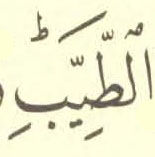 الطَّيِّبِؕ